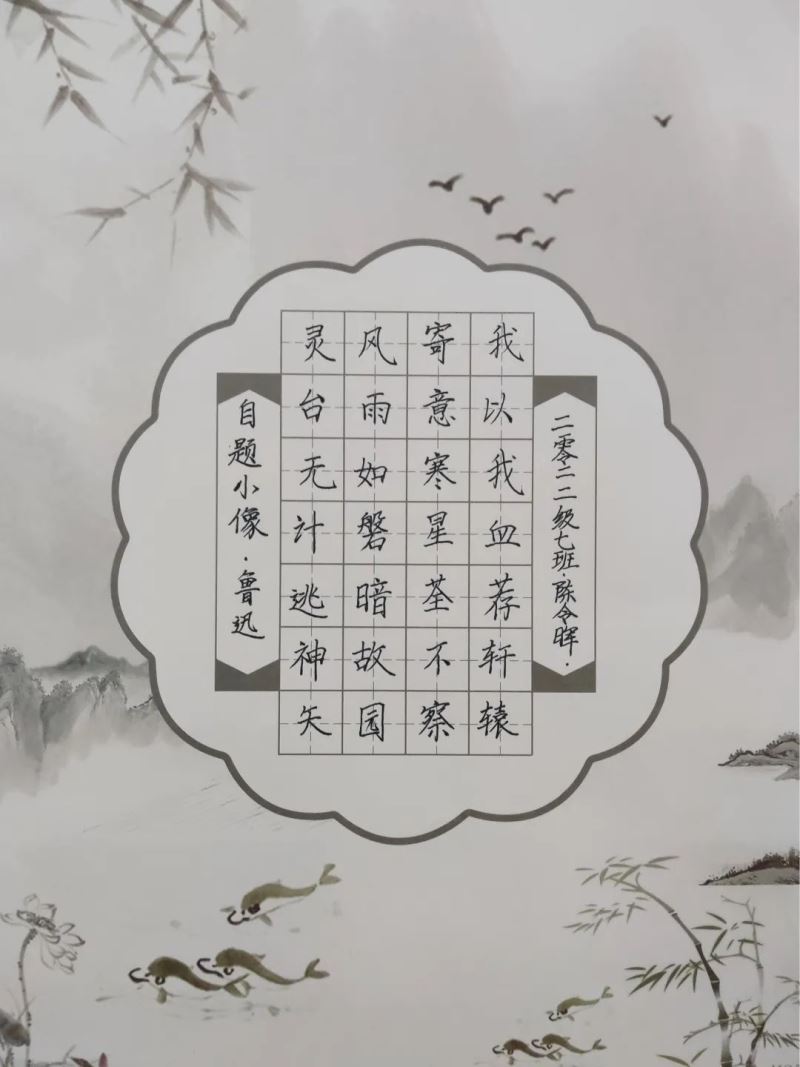 自题小像·鲁迅
灵台无计逃神矢
风雨如磐暗故园
寄意寒星荃不察
我以我血荐轩辕
二零二二级七班·陈令晖·